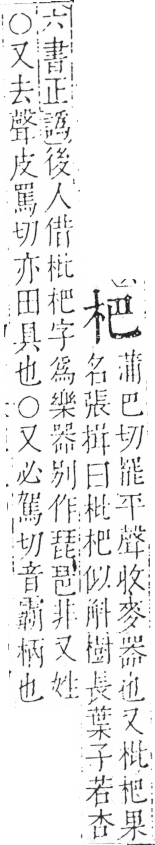 杷
蒲巴切罷平聲收麥器也又枇杷果
名張揖曰枇杷似斛樹長葉子若杏
六書正譌後人借枇杷字爲樂器别作琵琶非又姓
○又去聲皮駡切亦田具也○又必駕切音霸柄也